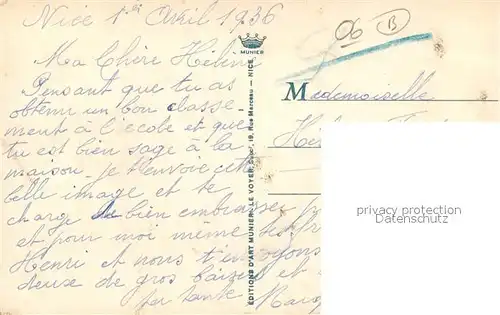 Nice 1er Avril 1936
Ma Chère Hélène
Pensant que tu as
obtenu un bon classe
ment à l'école et que
tu est bien sage à la
maison je t'envoie cette
belle image et te
charge de bien embrasser
et pour moi même
Henri et nous t'envoyons
deux de gros baisers et
ta tante
06 B
MUNIER
EDITIONS D'ART MUNIER - LE VOYER, 18, Rue Marceau — NICE
Mademoiselle
privacy protection